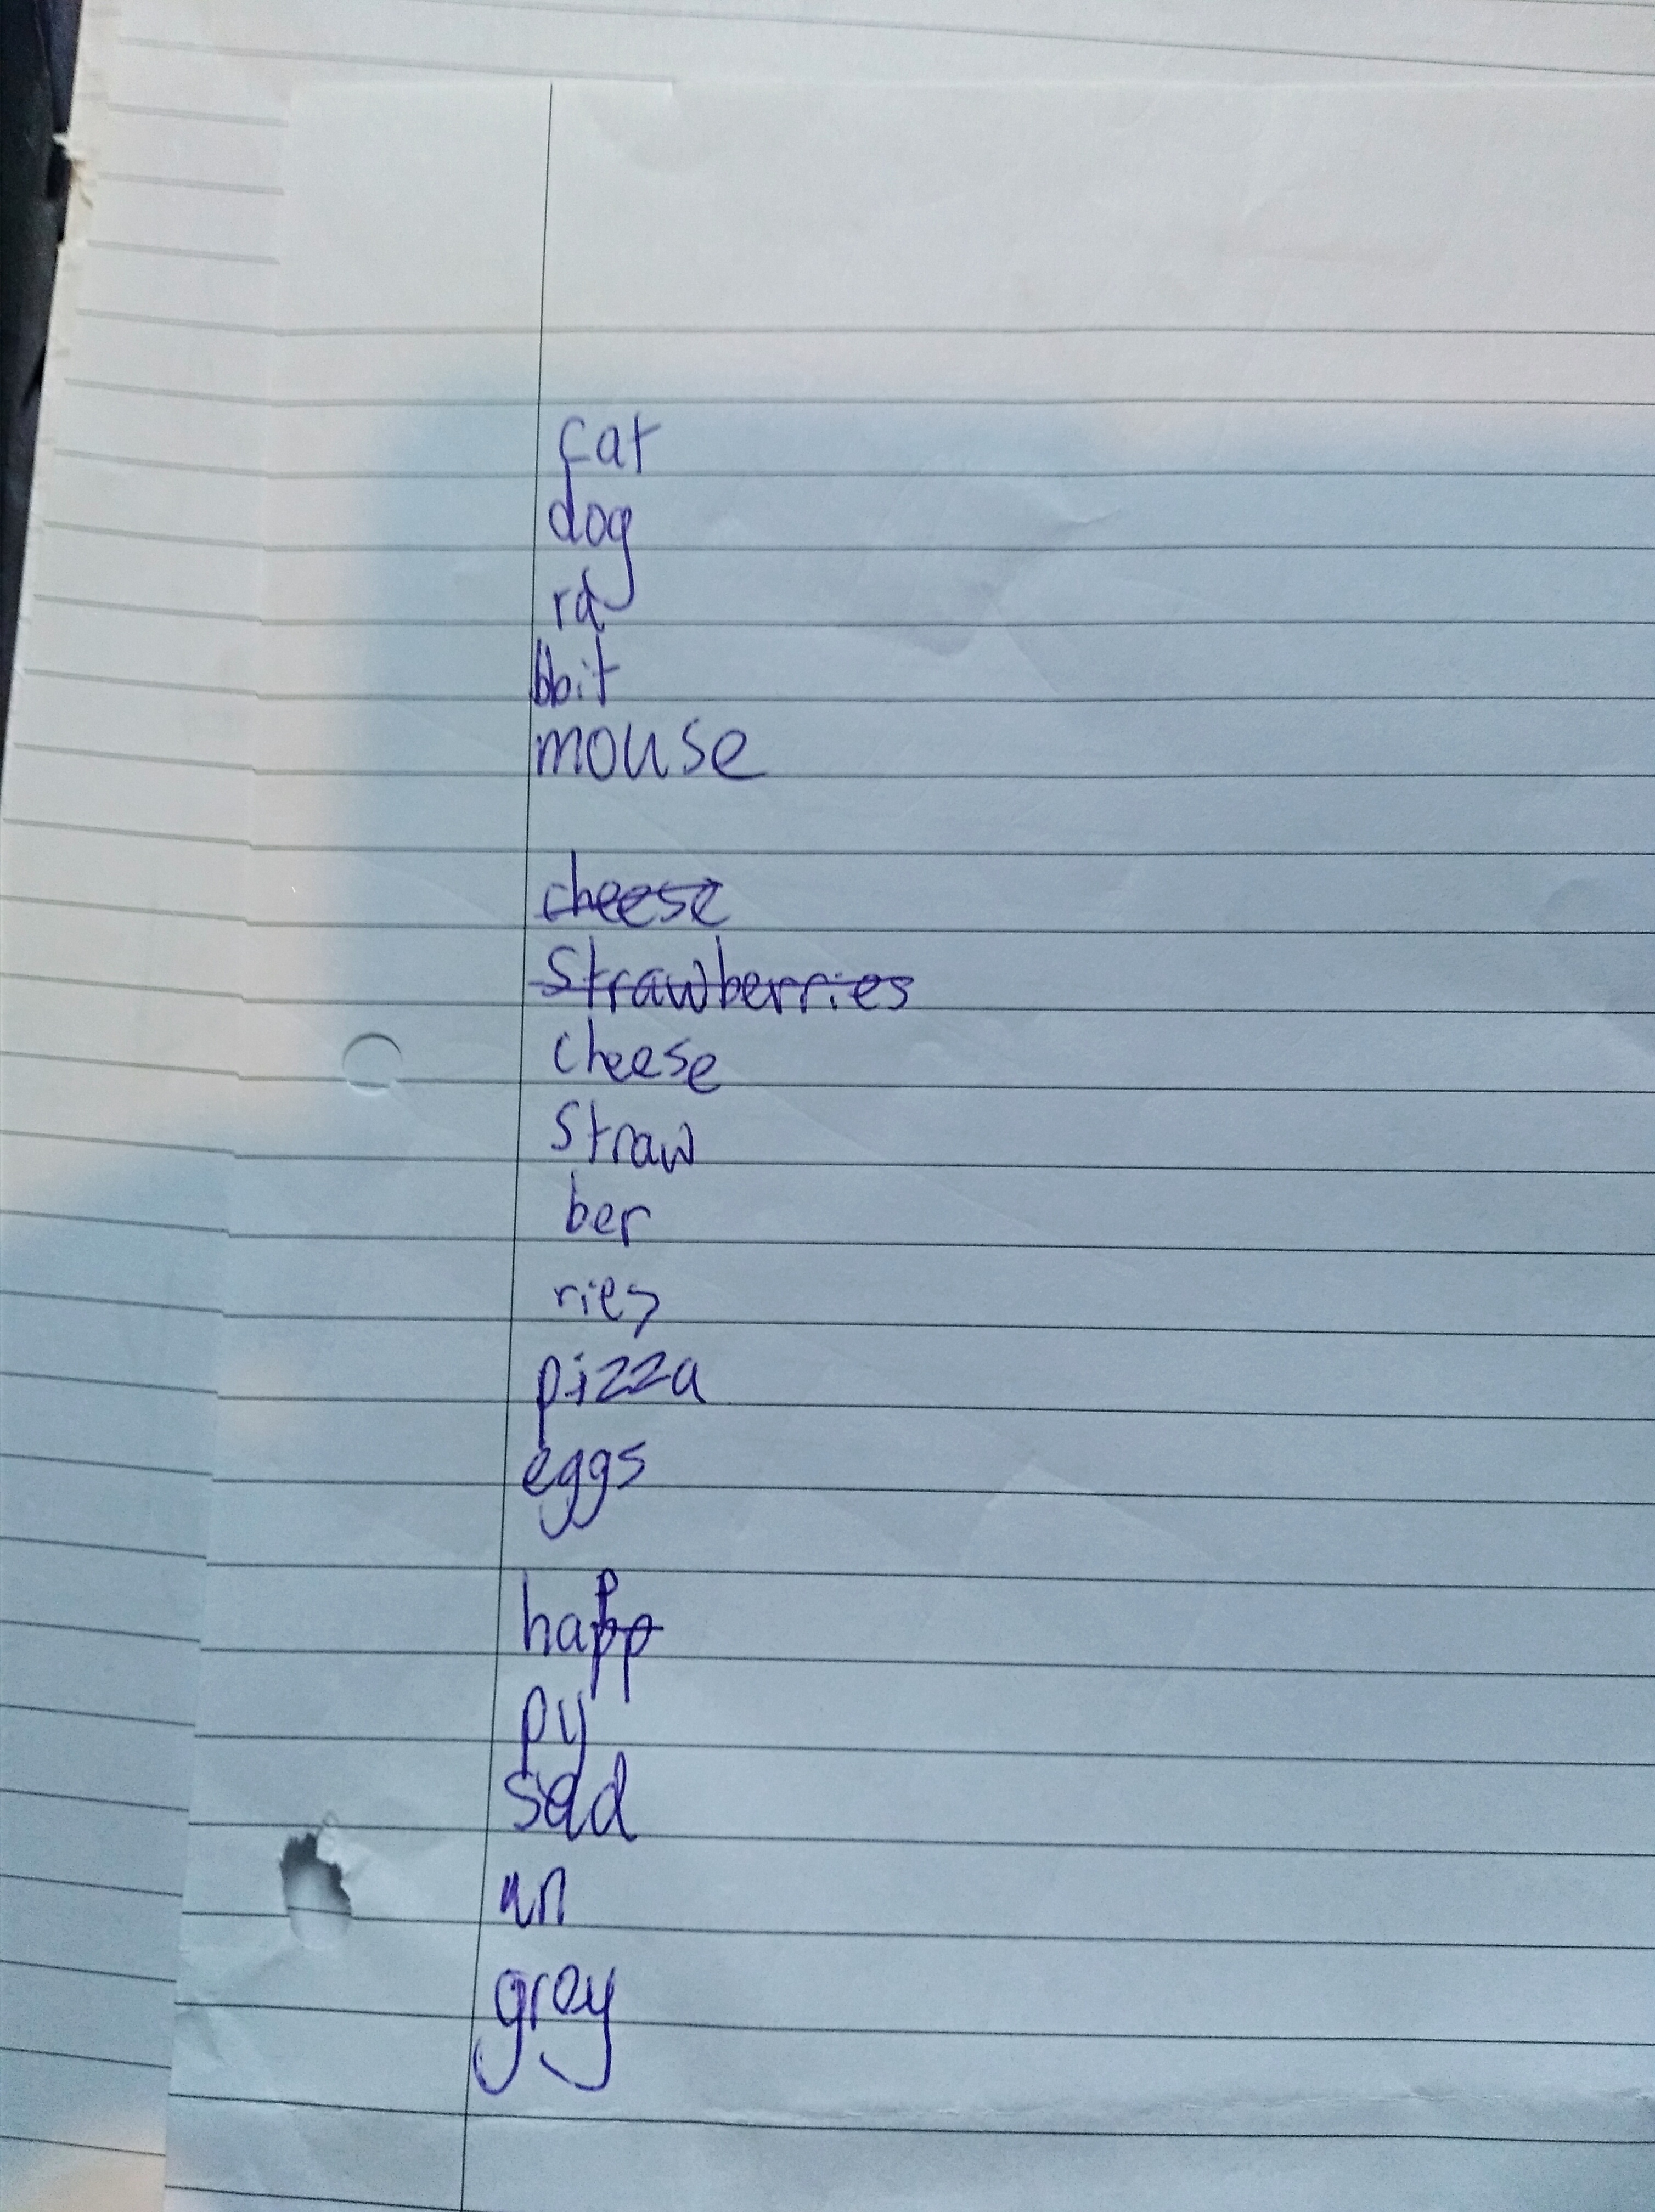 cat
dog
ra
bbit
mouse
cheese
strawberries
cheese
straw
ber
ries
pizza
eggs
happ
py
sad
an
gray